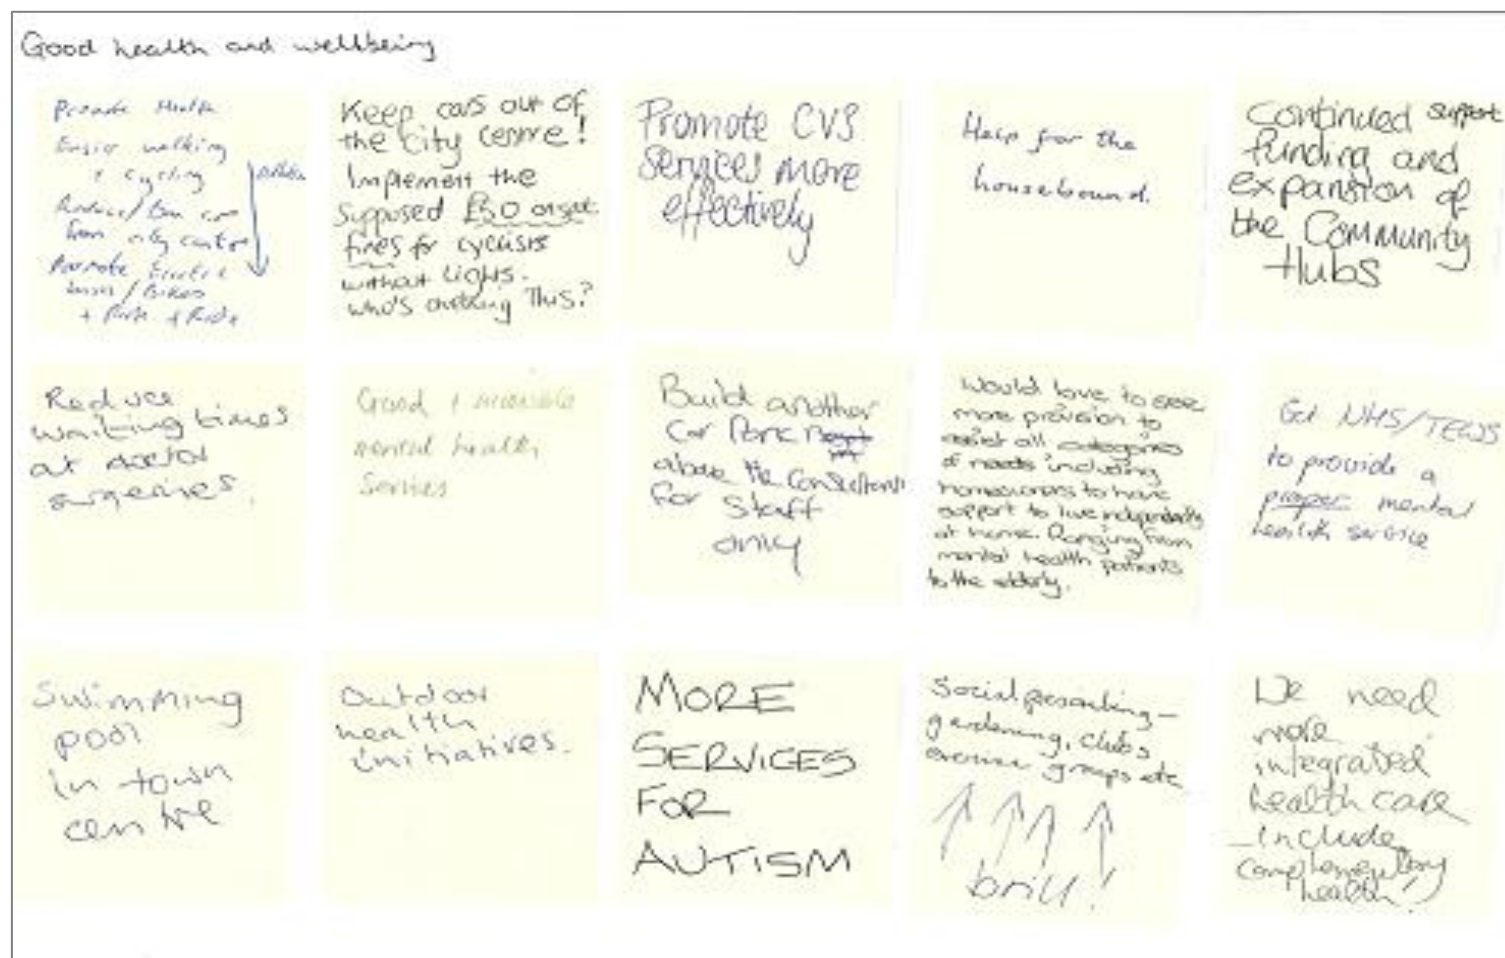 Good health and wellbeing
Promote Health
Easier walking
+ cycling
Reduce/Ban cars
from city centre
Promote Electric
buses/Bikes
+ Park + Ride
Keep cars out of
the city centre!
Implement the
supposed £50 onset
fines for cyclists
without lights.
who's checking This?
Promote CVS
Services more
effectively
Help for the
housebound.
Continued support
funding and
expansion of
the Community
Hubs
Reduce
waiting times
at doctor
surgeries.
Good + accessible
mental health
Services
Build another
Car Park
above the
for Staff
only
Would love to see
more provision to
assist all categories
of needs including
homeowners to have
support to live independently
at home. Ranging from
mental health patients
to the elderly.
Get NHS/TEWV
to provide a
proper mental
health service
Swimming
pool
in town
centre
Outdoor
health
initiatives.
MORE
SERVICES
FOR
AUTISM
Social prescribing –
gardening, clubs
exercise groups etc
brill!
We need
more
integrated
health care
– include
complementary
health!